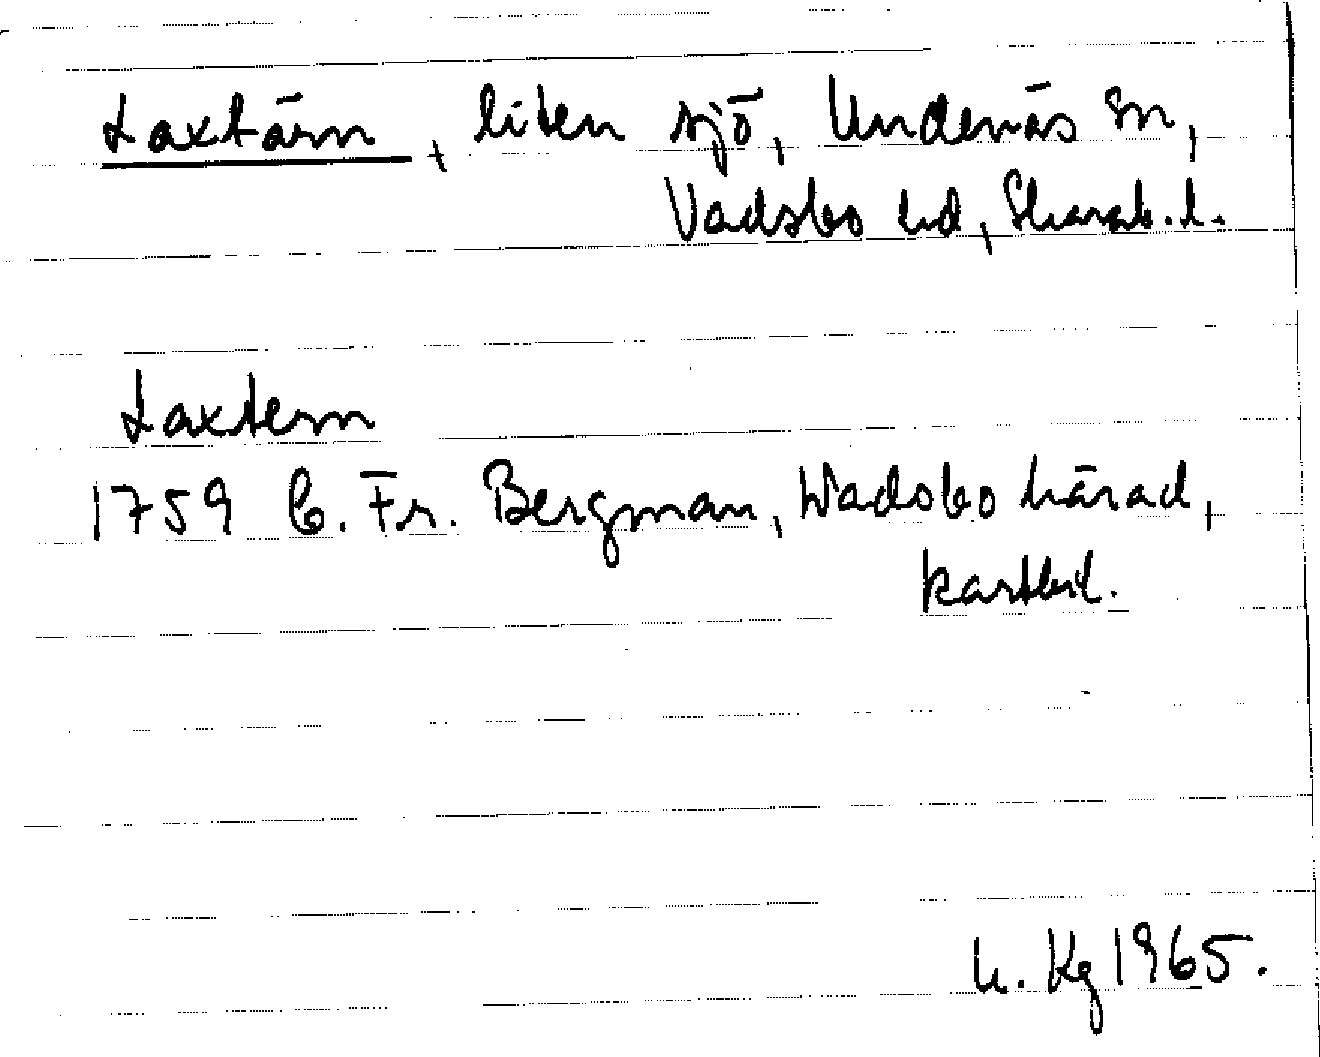 Laxtärn, liten sjö, Undenäs sn,
Vadsbo hd, Skarab. l.
Laxtern
1759 C. Fr. Bergman, Wadsbo härad,
kartbil.
K. Kg 1965.